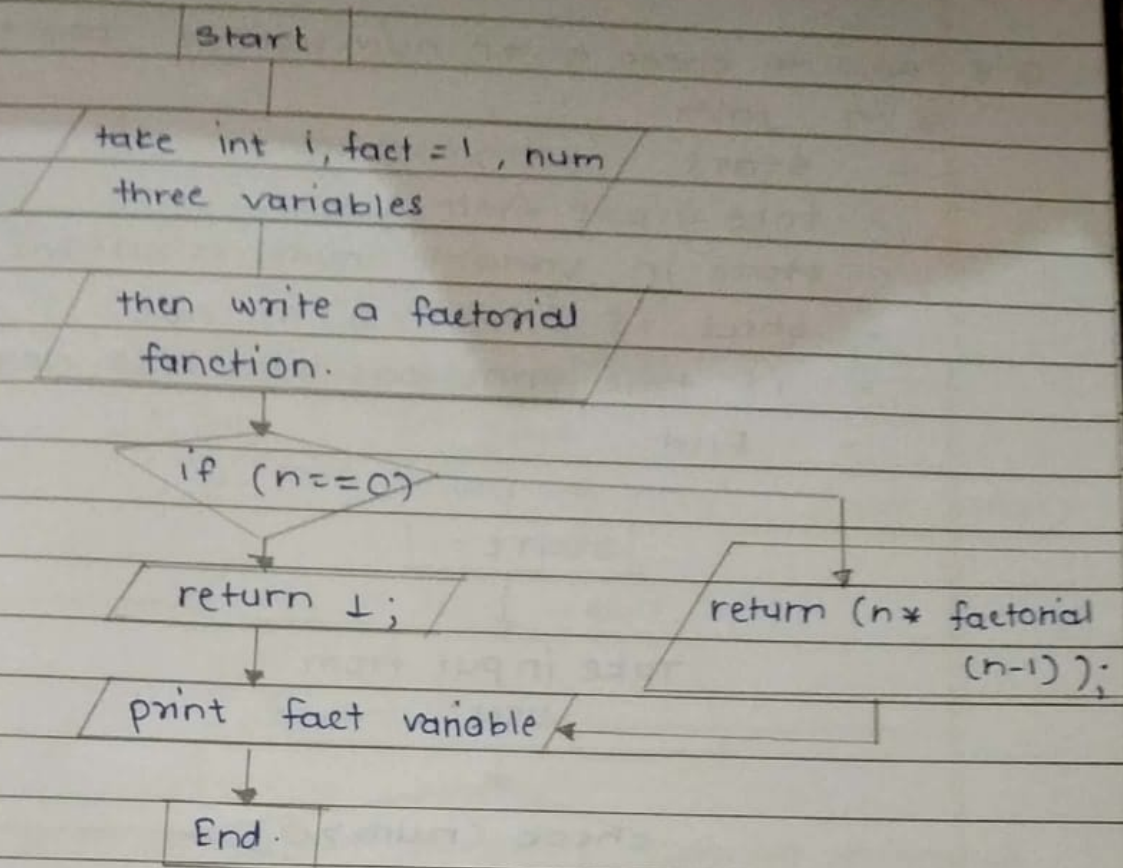 start
take int i, fact = 1, num
three variables
then write a factorial
fanction.
if (n==0)
return 1;
return (n* factorial
(n-1));
print fact variable
End.